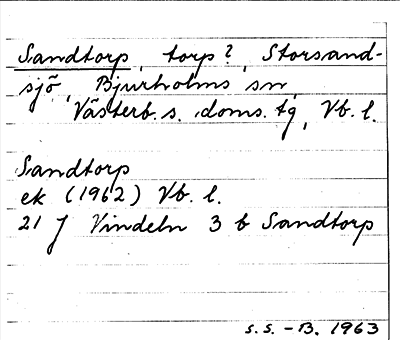 Sandtorp, torp?, Storsand-
sjö, Bjurholms sn,
Västerb. s. doms. tg, Vb. l.
Sandtorp
ek (1962) Vb. l.
21 J Vindeln 3 b Sandtorp
S.S. - B. 1963